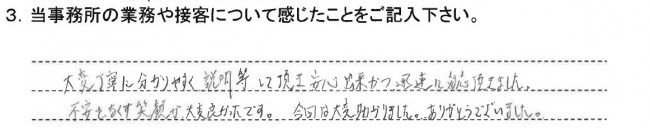 3. 当事務所の業務や接客について感じたことをご記入下さい。
大変丁寧に分かりやすく説明等して頂き安心出来かつ迅速に頂きました。
不安もなく笑顔が大変良かったです。今回は大変助かりました。ありがとうございました。